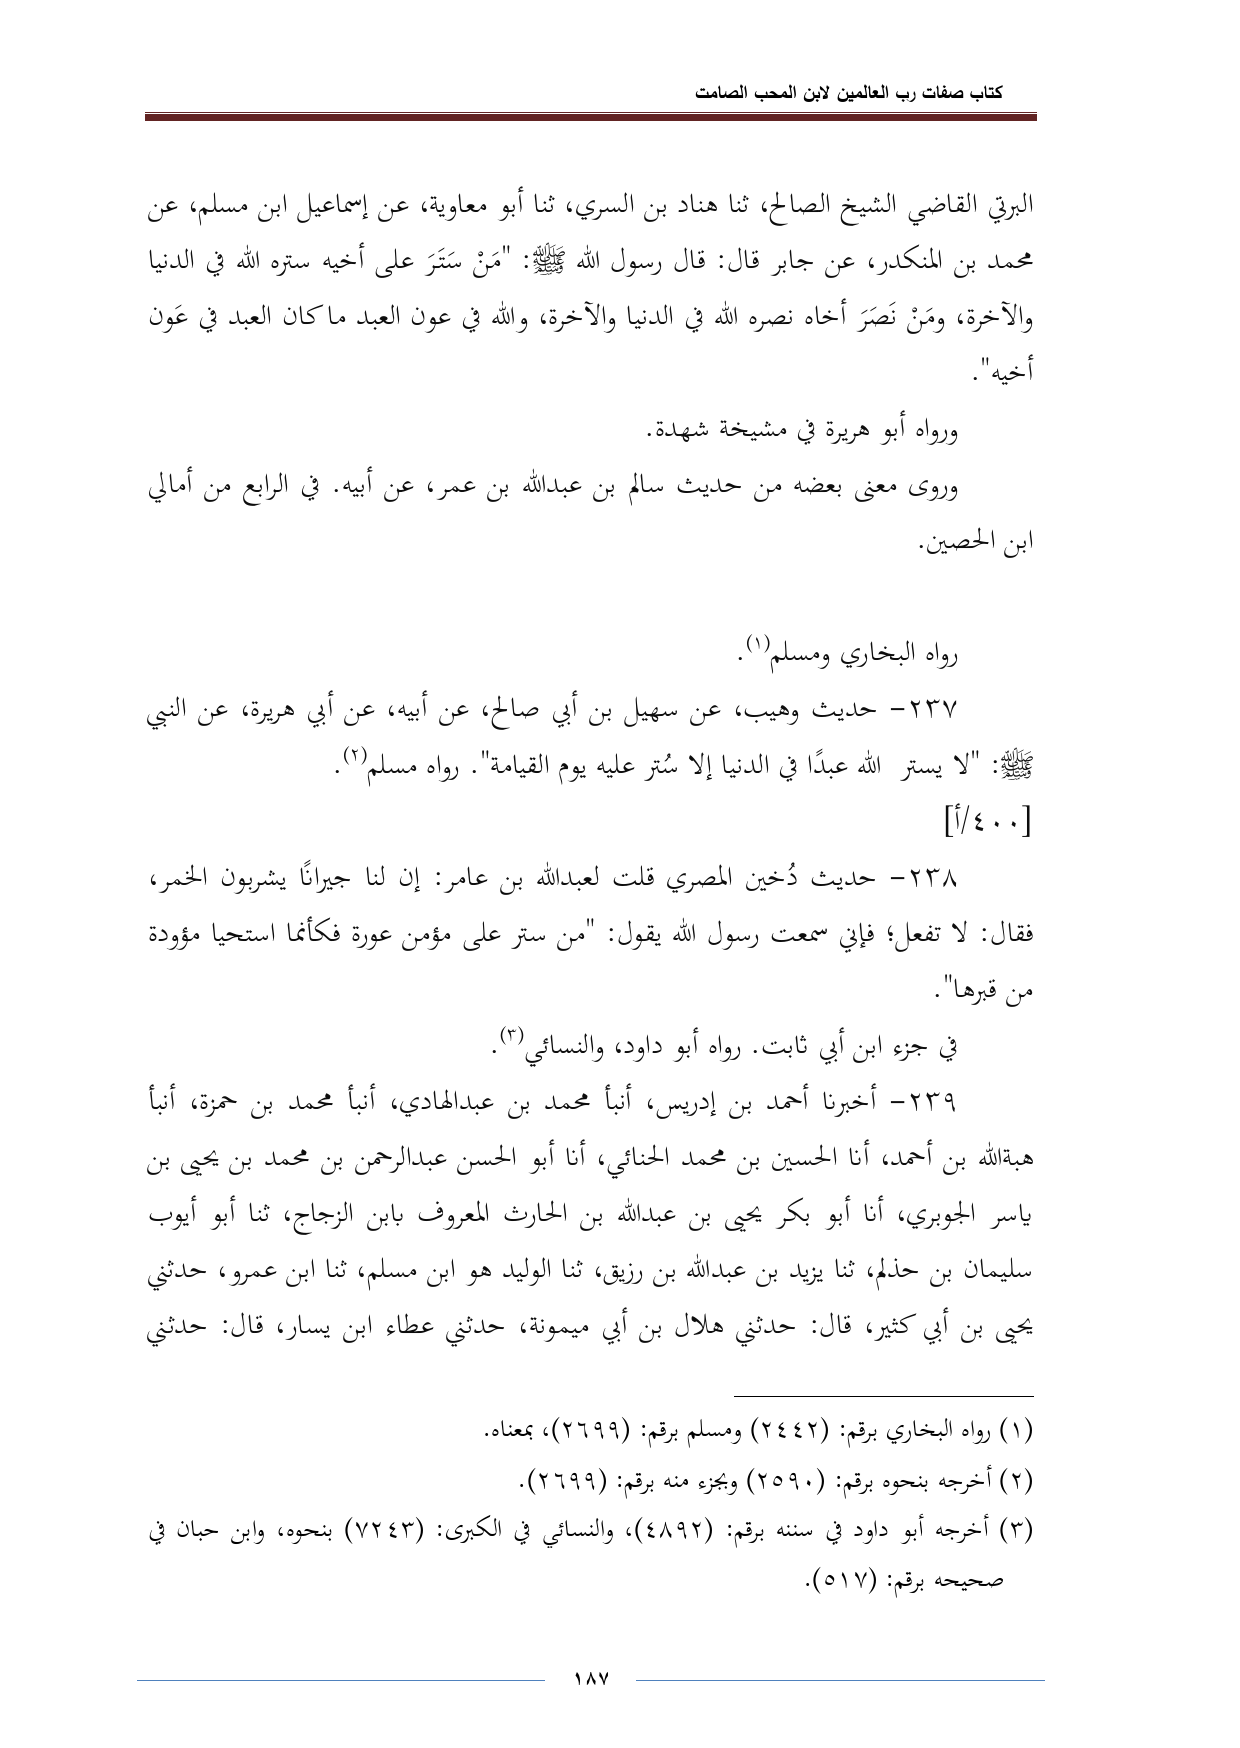 كتاب صفات رب العالمين لابن المحب الصامت
البرتي القاضي الشيخ الصالح، ثنا هناد بن السري، ثنا أبو معاوية، عن إسماعيل ابن مسلم، عن
محمد بن المنكدر، عن جابر قال: قال رسول الله ﷺ: "مَنْ سَتَرَ على أخيه ستره الله في الدنيا
والآخرة، ومَنْ نَصَرَ أخاه نصره الله في الدنيا والآخرة، والله في عون العبد ما كان العبد في عَون
أخيه".
ورواه أبو هريرة في مشيخة شهدة.
وروى معنى بعضه من حديث سالم بن عبدالله بن عمر، عن أبيه. في الرابع من أمالي
ابن الحصين.
رواه البخاري ومسلم(١).
٢٣٧- حديث وهيب، عن سهيل بن أبي صالح، عن أبيه، عن أبي هريرة، عن النبي
ﷺ: "لا يستر الله عبدًا في الدنيا إلا سُتر عليه يوم القيامة". رواه مسلم(٢).
[٤٠٠/أ]
٢٣٨- حديث دُخين المصري قلت لعبدالله بن عامر: إن لنا جيرانًا يشربون الخمر،
فقال: لا تفعل؛ فإني سمعت رسول الله يقول: "من ستر على مؤمن عورة فكأنما استحيا مؤودة
من قبرها".
في جزء ابن أبي ثابت. رواه أبو داود، والنسائي(٣).
٢٣٩- أخبرنا أحمد بن إدريس، أنبأ محمد بن عبدالهادي، أنبأ محمد بن حمزة، أنبأ
هبةالله بن أحمد، أنا الحسين بن محمد الحنائي، أنا أبو الحسن عبدالرحمن بن محمد بن يحيى بن
ياسر الجوبري، أنا أبو بكر يحيى بن عبدالله بن الحارث المعروف بابن الزجاج، ثنا أبو أيوب
سليمان بن حذلم، ثنا يزيد بن عبدالله بن رزيق، ثنا الوليد هو ابن مسلم، ثنا ابن عمرو، حدثني
يحيى بن أبي كثير، قال: حدثني هلال بن أبي ميمونة، حدثني عطاء ابن يسار، قال: حدثني
(١) رواه البخاري برقم: (٢٤٤٢) ومسلم برقم: (٢٦٩٩)، بمعناه.
(٢) أخرجه بنحوه برقم: (٢٥٩٠) وبجزء منه برقم: (٢٦٩٩).
(٣) أخرجه أبو داود في سننه برقم: (٤٨٩٢)، والنسائي في الكبرى: (٧٢٤٣) بنحوه، وابن حبان في
صحيحه برقم: (٥١٧).
١٨٧